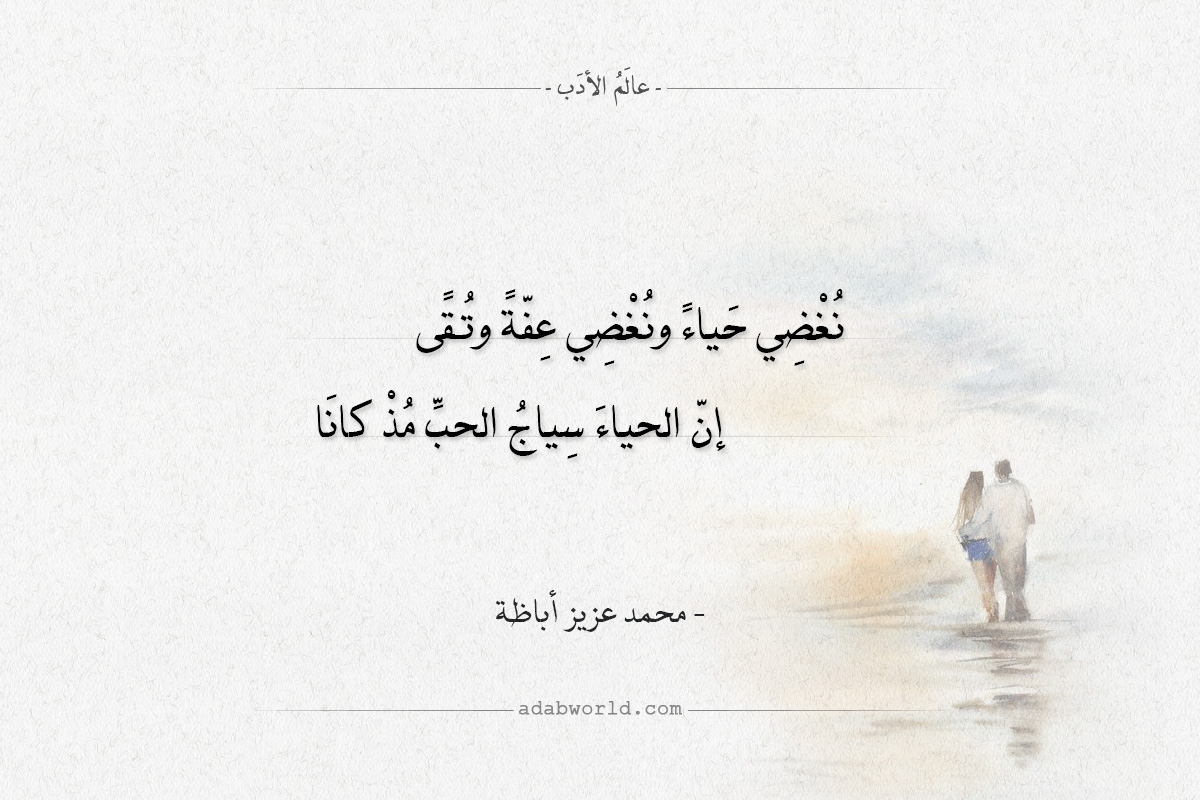 - عالَمُ الأدَب -
نُغْضِي حَياءً ونُغْضِي عِفّةً وتُقًى
إنّ الحياءَ سِياجُ الحبِّ مُذْ كانَا
- محمد عزيز أباظة
adabworld.com